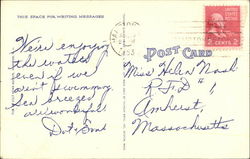 THIS SPACE FOR WRITING MESSAGES
We're enjoying
the water
even if we
aren't swimming
Sea breezes
are wonderful
UNITED STATES POSTAGE
2 CENTS 2
POST CARD
Miss Helen Nash
R.F.D. #1
Amherst,
Massachusetts